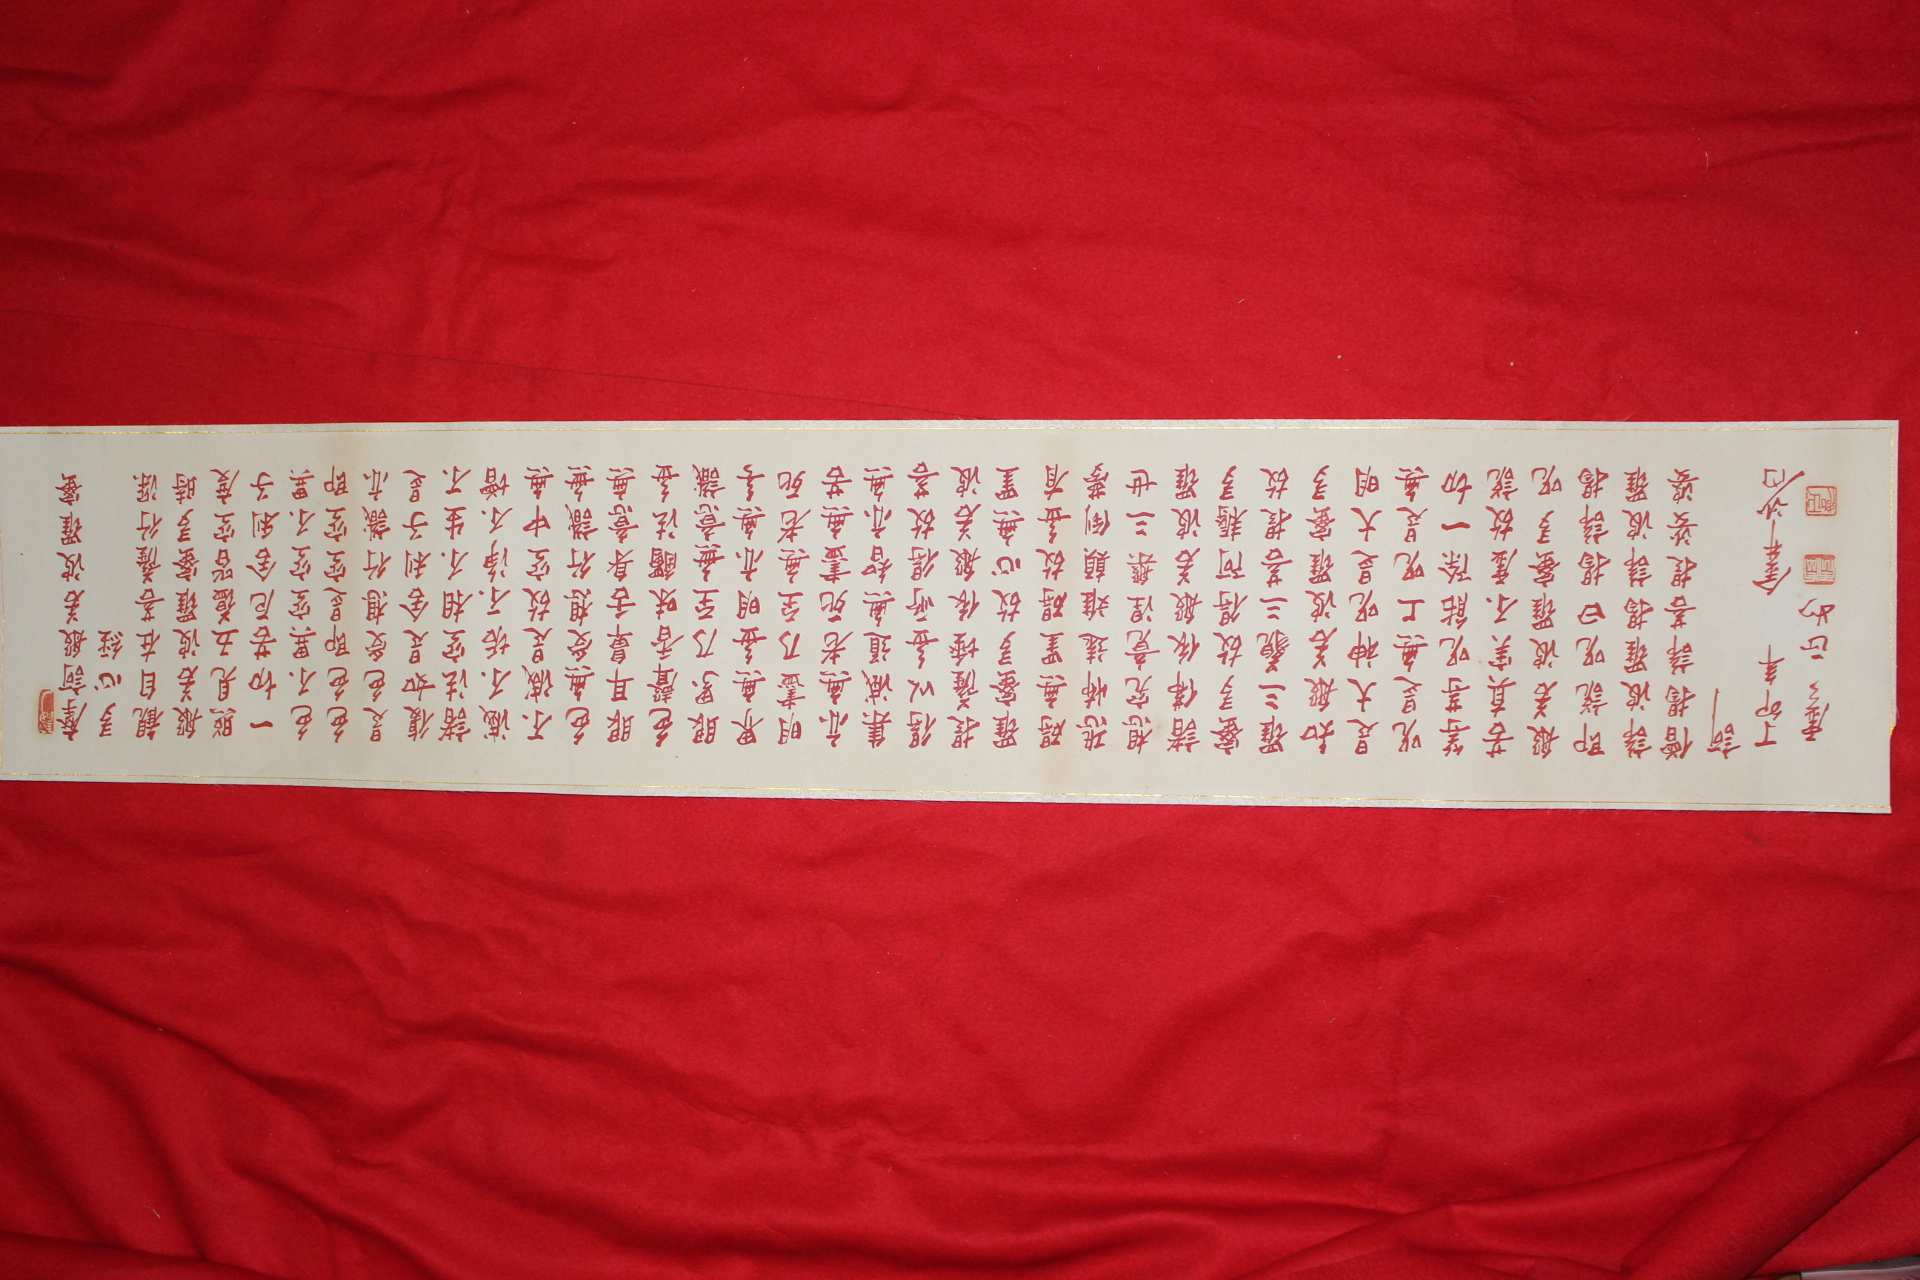 摩訶般若波羅蜜
多心経
觀自在菩薩行深
般若波羅蜜多時
照見五蘊皆空度
一切苦厄舍利子
色不異空空不異
色色即是空空即
是色受想行識亦
復如是舍利子是
諸法空相不生不
滅不垢不淨不增
不減是故空中無
色無受想行識無
眼耳鼻舌身意無
色聲香味觸法無
眼界乃至無意識
界無無明亦無無
明盡乃至無老死
亦無老死盡無苦
集滅道無智亦無
得以無所得故菩
提薩埵依般若波
羅蜜多故心無罣
礙無罣礙故無有
恐怖遠離顛倒夢
想究竟涅槃三世
諸佛依般若波羅
蜜多故得阿耨多
羅三藐三菩提故
知般若波羅蜜多
是大神呪是大明
呪是無上呪是無
等等呪能除一切
苦真實不虛故說
般若波羅蜜多呪
即說呪曰揭諦揭
諦波羅揭諦波羅
僧揭諦菩提娑婆
訶
丁卯年